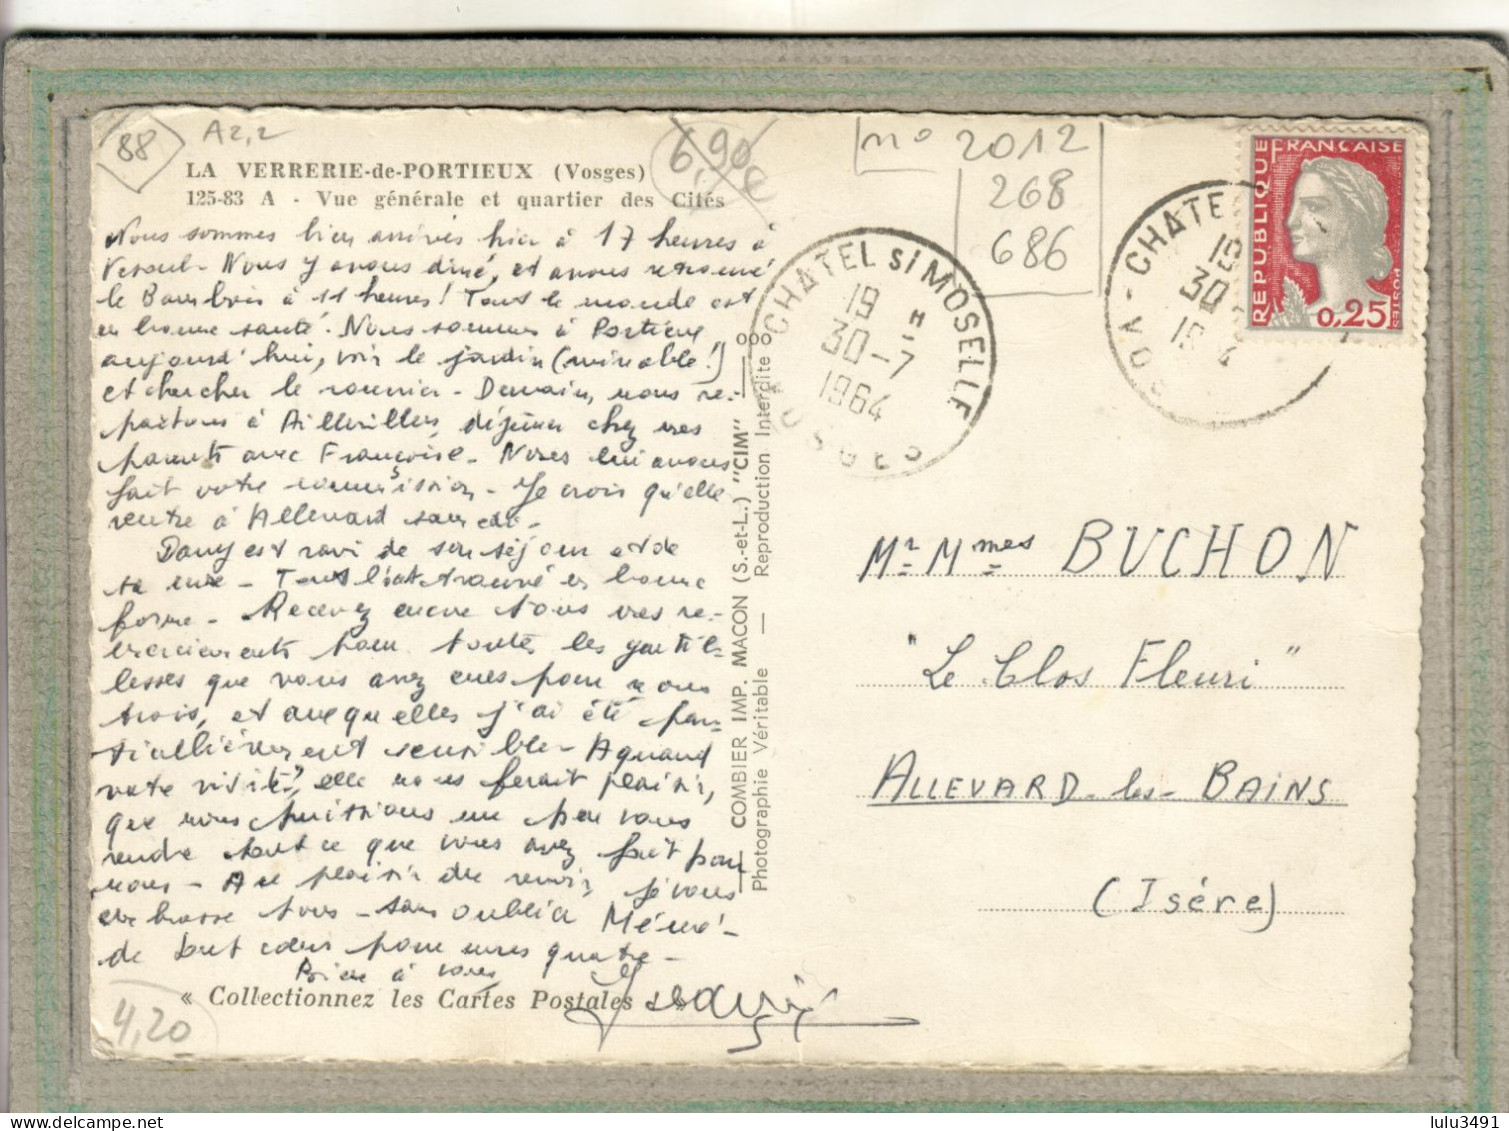 88
A2,2
LA VERRERIE-de-PORTIEUX (Vosges)
125-83 A - Vue générale et quartier des Cités
6,90 €
n° 2012
268
686
Nous sommes bien arrivés hier à 17 heures à
Vesoul - Nous y avons dîné, et avons retrouvé
le à 11 heures! Tout le monde est
en bonne santé. Nous sommes à Portieux
aujourd'hui, voir le jardin (minable!)
et chercher le courrier - Demain, nous re-
partons à Aillevillers, déjeuner chez mes
parents avec Françoise - Nous lui avons
fait votre commission - Je crois qu'elle
rentre à Allevard samedi -
Dany est ravi de son séjour et de
sa cure - Tous l'ont trouvé en bonne
forme - Recevez encore tous mes re-
merciements pour toutes les gentil-
lesses que vous avez eues pour nous
trois, et auxquelles j'ai été par-
ticulièrement sensible - A quand
votre visite?, elle nous ferait plaisir,
que nous puissions un peu vous
rendre tout ce que vous avez fait pour
nous - Au plaisir de vous revoir, je vous
embrasse tous - sans oublier Mémé -
de tout cœur pour nous quatre -
Bien à vous
« Collectionnez les Cartes Postales
4,20
COMBIER IMP. MACON (S.-et-L.) "CIM"
Photographie Véritable — Reproduction Interdite
CHATEL S/ MOSELLE
19 H
30-7
1964
VOSGES
CHATEL
19
30
19 4
VOSGES
REPUBLIQUE FRANCAISE
0,25
POSTES
Mr Mmes BUCHON
"Le Clos Fleuri"
ALLEVARD-les-BAINS
(Isére)
lulu3491